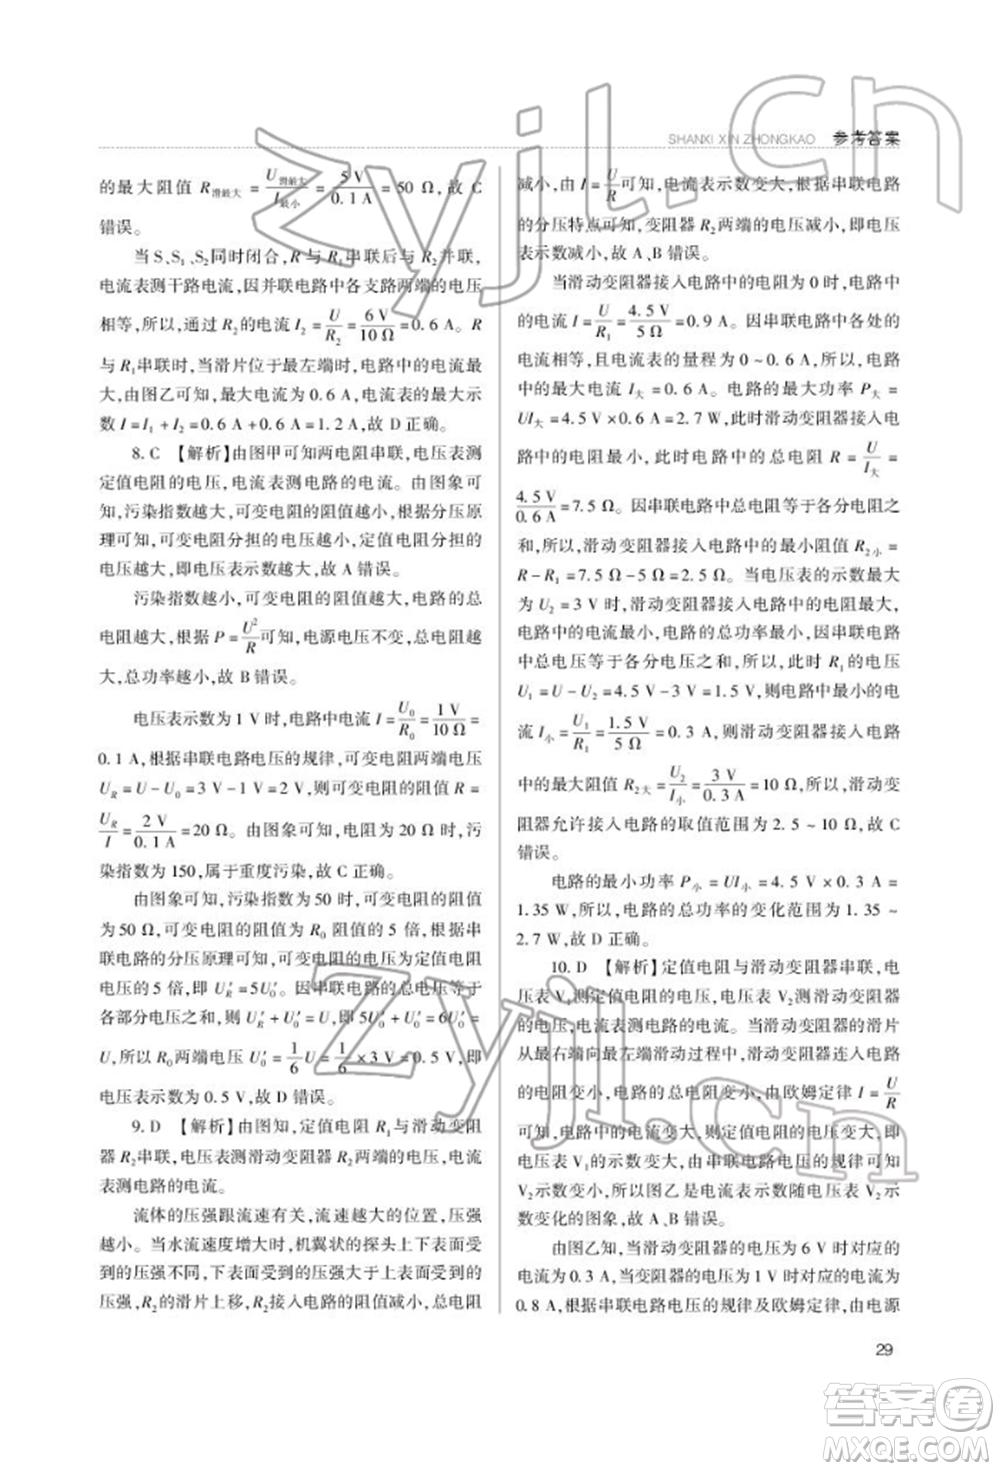 SHANXI XIN ZHONGKAO 参考答案
的最大阻值 R滑最大 = U滑最大/I最小 = 5 V/0.1 A = 50 Ω,故 C
错误。
当 S、S₁、S₂同时闭合,R 与 R₁串联后与 R₂并联,
电流表测干路电流,因并联电路中各支路两端的电压
相等,所以,通过 R₂的电流 I₂ = U/R₂ = 6 V/10 Ω = 0.6 A。R
与 R₁串联时,当滑片位于最左端时,电路中的电流最
大,由图乙可知,最大电流为 0.6 A,电流表的最大示
数 I = I₁ + I₂ = 0.6 A + 0.6 A = 1.2 A,故 D 正确。
8. C 【解析】由图甲可知两电阻串联,电压表测
定值电阻的电压,电流表测电路的电流。由图象可
知,污染指数越大,可变电阻的阻值越大,根据分压原
理可知,可变电阻分担的电压越小,定值电阻分担的
电压越大,即电压表示数越大,故 A 错误。
污染指数越小,可变电阻的阻值越大,电路的总
电阻越大,根据 P = U²/R 可知,电源电压不变,总电阻越
大,总功率越小,故 B 错误。
电压表示数为 1 V 时,电路中电流 I = U₀/R₀ = 1 V/10 Ω =
0.1 A,根据串联电路电压的规律,可变电阻两端电压
U_R = U - U₀ = 3 V - 1 V = 2 V,可变电阻的阻值 R =
U_R/I = 2 V/0.1 A = 20 Ω。由图象可知,电阻为 20 Ω 时,污
染指数为 150,属于重度污染,故 C 正确。
由图象可知,污染指数为 50 时,可变电阻的阻值
为 50 Ω,可变电阻的阻值为 R₀ 阻值的 5 倍,根据串
联电路的分压原理可知,可变电阻的电压为定值电阻
的 5 倍,即 U′_R = 5U′₀。因串联电路的总电压等于
各部分电压之和,则 U′_R + U′₀ = U,即 5U′₀ + U′₀ = 6U′₀ =
U,所以 R₀ 两端电压 U′₀ = 1/6 U = 1/6 × 3 V = 0.5 V,即
电压表示数为 0.5 V,故 D 错误。
9. D 【解析】由图知,定值电阻 R₁与滑动变阻
器 R₂串联,电压表测滑动变阻器 R₂两端的电压,电流
表测电路的电流。
流体的压强跟流速有关,流速越大的位置,压强
越小。当水流速度增大时,机翼状的探头上下表面受
的压强不同,下表面受到的压强大于上表面受到的
压强,R₂的滑片上移,R₂接入电路的阻值减小,总电阻
减小,由 I = U/R 可知,电流表示数变大,根据串联电路
的分压特点可知,变阻器 R₂两端的电压减小,即电压
表示数减小,故 A、B 错误。
当滑动变阻器接入电路中的电阻为 0 时,电路中
的电流 I = U/R₁ = 4.5 V/5 Ω = 0.9 A。因串联电路中各处的
电流相等,且电流表的量程为 0 ~ 0.6 A,所以,电路
中的最大电流 I大 = 0.6 A。电路的最大功率 P大 =
UI大 = 4.5 V × 0.6 A = 2.7 W,此时滑动变阻器接入电
路中的电阻最小,此时电路中的总电阻 R = U/I大 =
4.5 V/0.6 A = 7.5 Ω。因串联电路中总电阻等于各分电阻之
和,所以,滑动变阻器接入电路中的最小阻值 R₂小 =
R - R₁ = 7.5 Ω - 5 Ω = 2.5 Ω。当电压表的示数最大
为 U₂ = 3 V 时,滑动变阻器接入电路中的电阻最大,
电路中的电流最小,电路的总功率最小,因串联电路
中总电压等于各分电压之和,所以,此时 R₁的电压
U₁ = U - U₂ = 4.5 V - 3 V = 1.5 V,则电路中最小的电
流 I小 = U₁/R₁ = 1.5 V/5 Ω = 0.3 A,则滑动变阻器接入电路
中的最大阻值 R₂大 = U₂/I小 = 3 V/0.3 A = 10 Ω,所以,滑动变
阻器允许接入电路的取值范围为 2.5 ~ 10 Ω,故 C
错误。
电路的最小功率 P小 = UI小 = 4.5 V × 0.3 A =
1.35 W,所以,电路的总功率的变化范围为 1.35 ~
2.7 W,故 D 正确。
10. D 【解析】定值电阻与滑动变阻器串联,电
压表 V₁测定值电阻的电压,电压表 V₂测滑动变阻器
的电压,电流表测电路的电流。当滑动变阻器的滑片
从最右端向最左端滑动过程中,滑动变阻器连入电路
的电阻变小,电路的总电阻变小,由欧姆定律 I = U/R
可知,电路中的电流变大,则定值电阻的电压变大,即
电压表 V₁示数变大;由串联电路电压的规律可知 V₂
示数变小,所以图乙是电流表示数随电压表 V₂示
数变化的图象,故 A、B 错误。
由图乙知,当滑动变阻器的电压为 6 V 时对应的
电流为 0.3 A,当变阻器的电压为 1 V 时对应的电流为
0.8 A,根据串联电路电压的规律及欧姆定律,由电源
29
zyjl.cn
zyjl.cn
答案圈
MXQE.COM